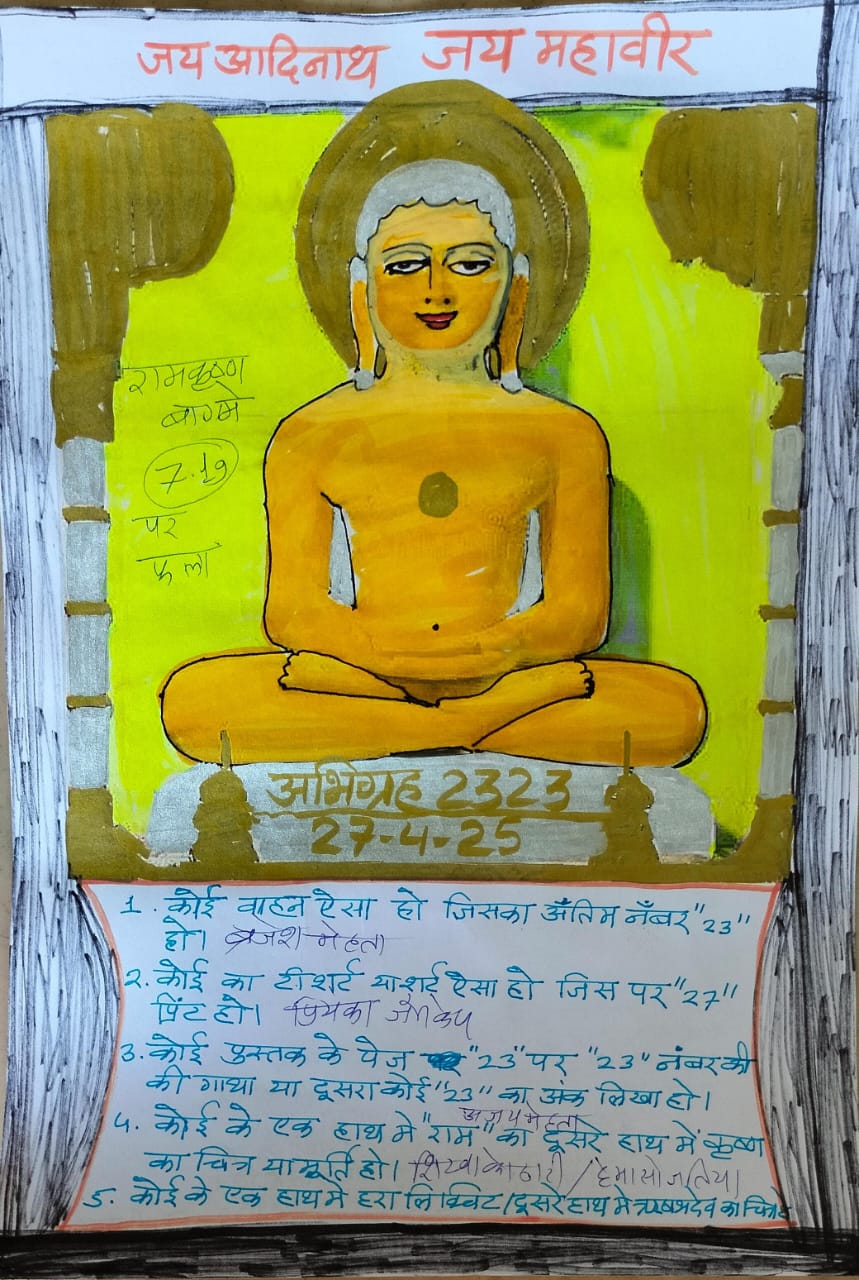 जय आदिनाथ जय महावीर
रामकृष्ण
बाग मे
7.19
पर
फला
अभिग्रह 2323
27-4-25
1. कोई वाहन ऐसा हो जिसका अँतिम नँबर "23"
हो। ब्रजेश मेहता
2. कोई का टीशर्ट या शर्ट ऐसा हो जिस पर "27"
प्रिंट हो।
3. कोई पुस्तक के पेज "23" पर "23" नंबर की
की गाथा या दूसरा कोई "23" का अंक लिखा हो।
अजय मेहता
4. कोई के एक हाथ मे "राम" का दूसरे हाथ में कृष्ण
का चित्र या मूर्ति हो। शिखा कोठारी /
5. कोई के एक हाथ मे हरा लिक्विट/दूसरे हाथ मे ऋषभदेव का चित्र हो